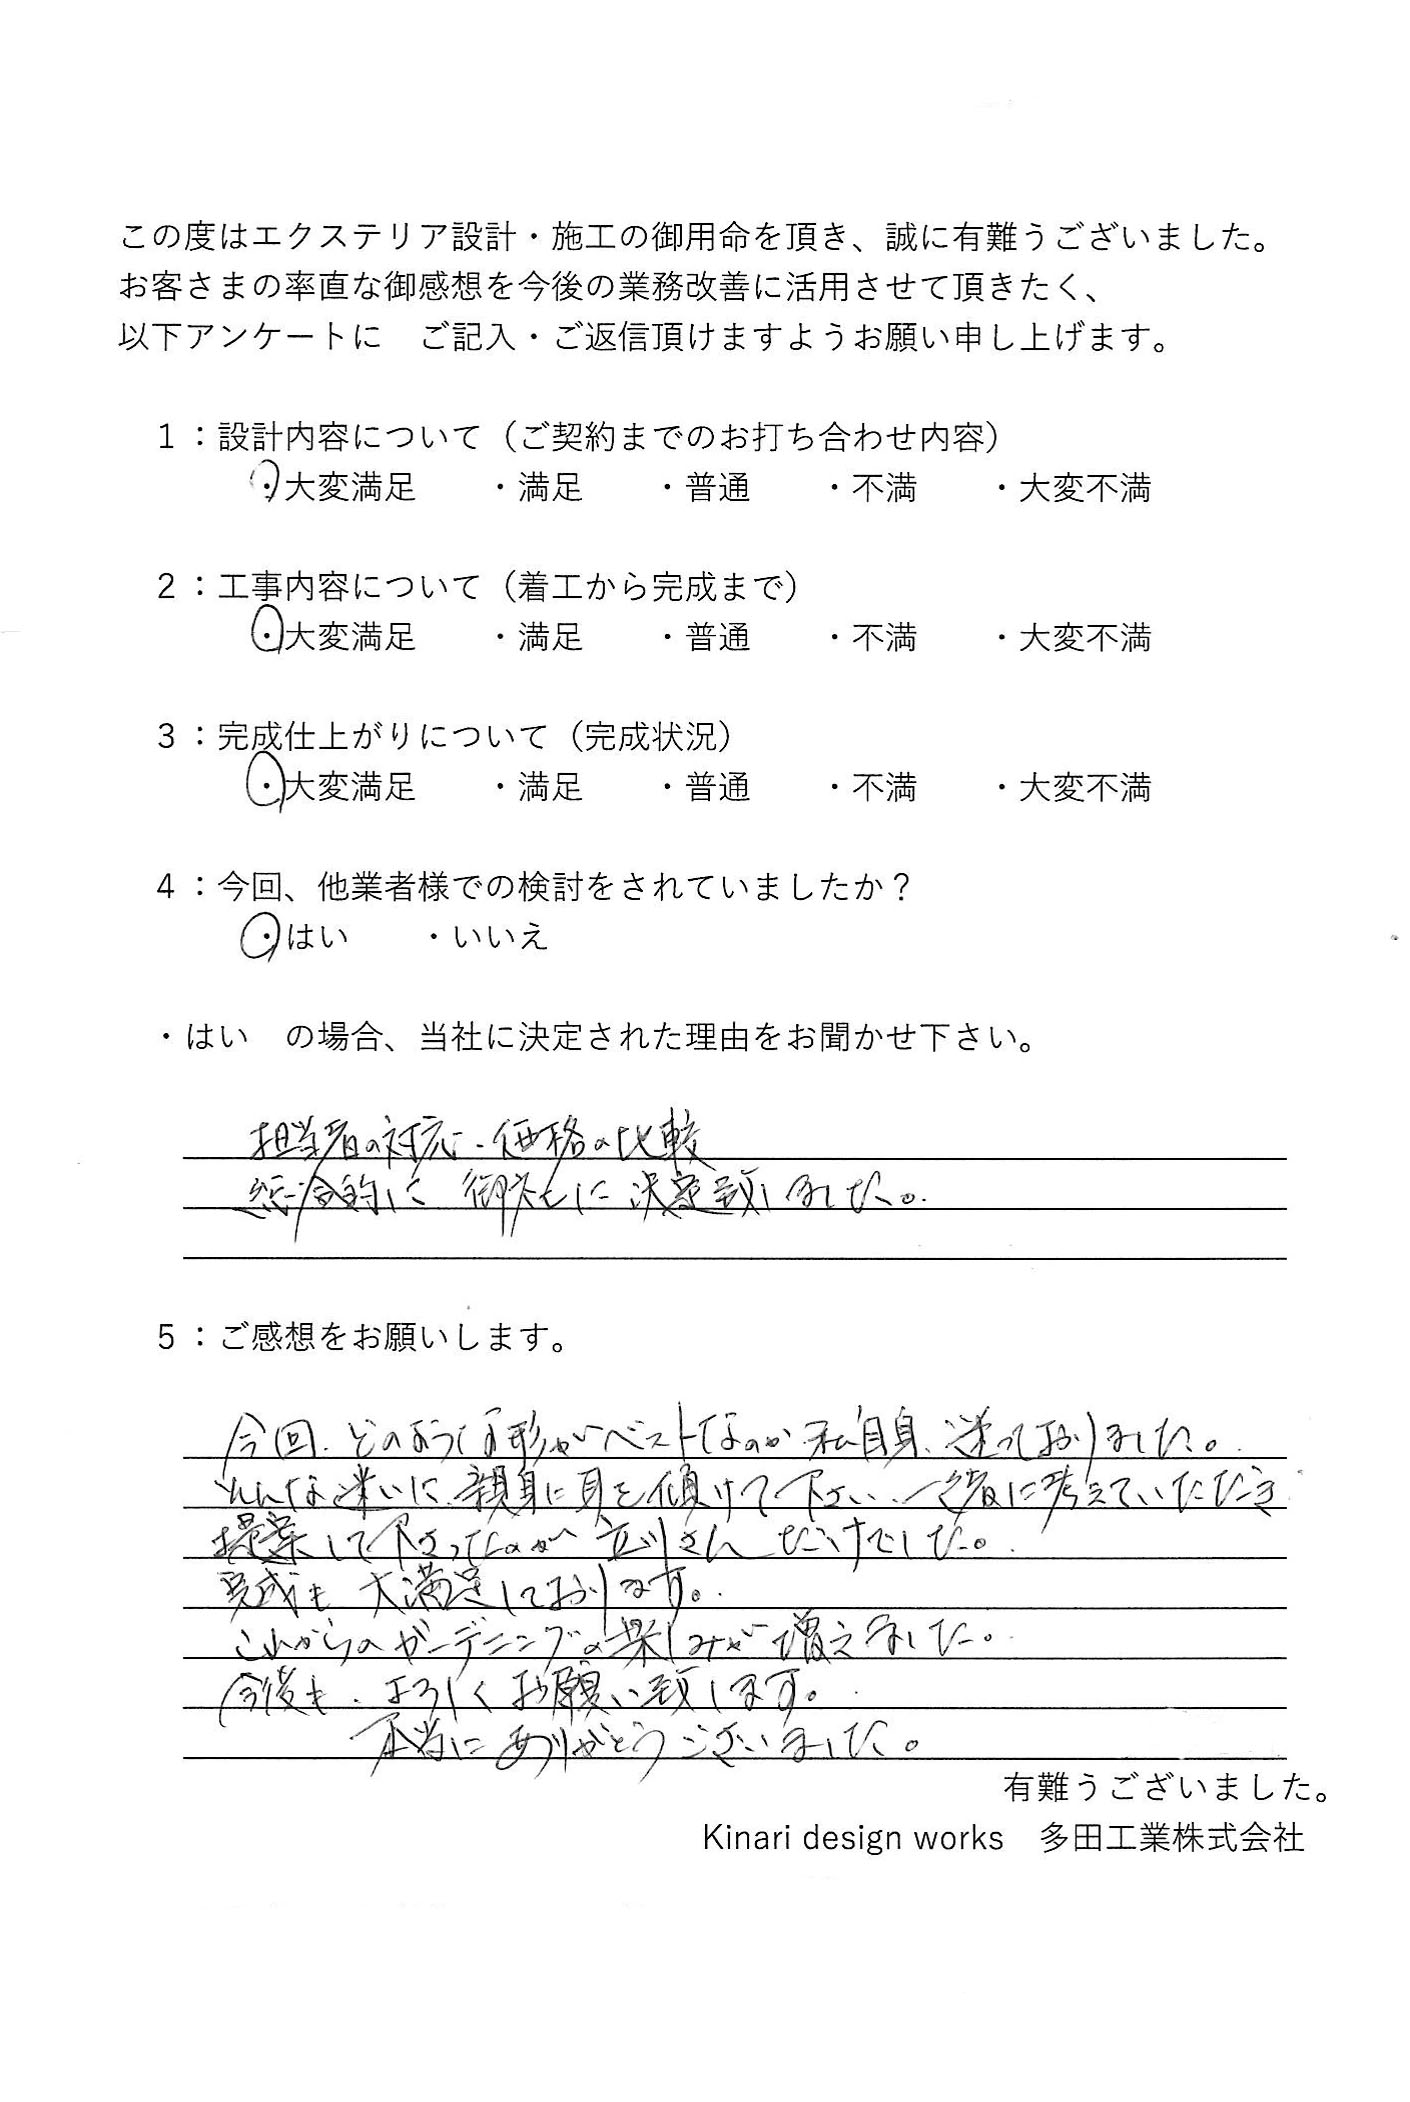 この度はエクステリア設計・施工の御用命を頂き、誠に有難うございました。
お客さまの率直な御感想を今後の業務改善に活用させて頂きたく、
以下アンケートに　ご記入・ご返信頂けますようお願い申し上げます。
1：設計内容について（ご契約までのお打ち合わせ内容）
・大変満足　・満足　・普通　・不満　・大変不満
2：工事内容について（着工から完成まで）
・大変満足　・満足　・普通　・不満　・大変不満
3：完成仕上がりについて（完成状況）
・大変満足　・満足　・普通　・不満　・大変不満
4：今回、他業者様での検討をされていましたか？
・はい　・いいえ
・はい　の場合、当社に決定された理由をお聞かせ下さい。
担当者の対応・価格の比較
総合的に 御社に 決定致しました。
5：ご感想をお願いします。
今回、どのような形がベストなのか 私自身、迷っておりました。
そんな迷いに、親身に耳を傾けて下さい、一緒に考えていただき
提案して下さったのが 立川さん だけでした。
完成も 大満足しております。
これからのガーデニングの楽しみが増えました。
今後も、よろしくお願い致します。
本当に ありがとうございました。
有難うございました。
Kinari design works　多田工業株式会社